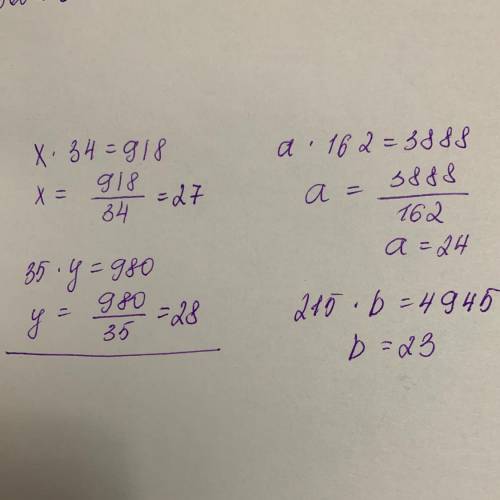 x · 34 = 918
x = 918/34 = 27
35 · y = 980
y = 980/35 = 28
a · 162 = 3888
a = 3888/162
a = 24
215 · b = 4945
b = 23